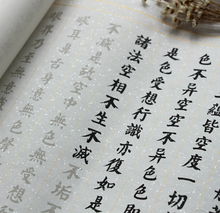 蘊皆空度一切
色不异空空不异色色即
是色受想行識亦復如是
諸法空相不生不滅不垢不
不減是故空中無色無受
眼耳鼻舌身意無色聲
眼界乃至無意